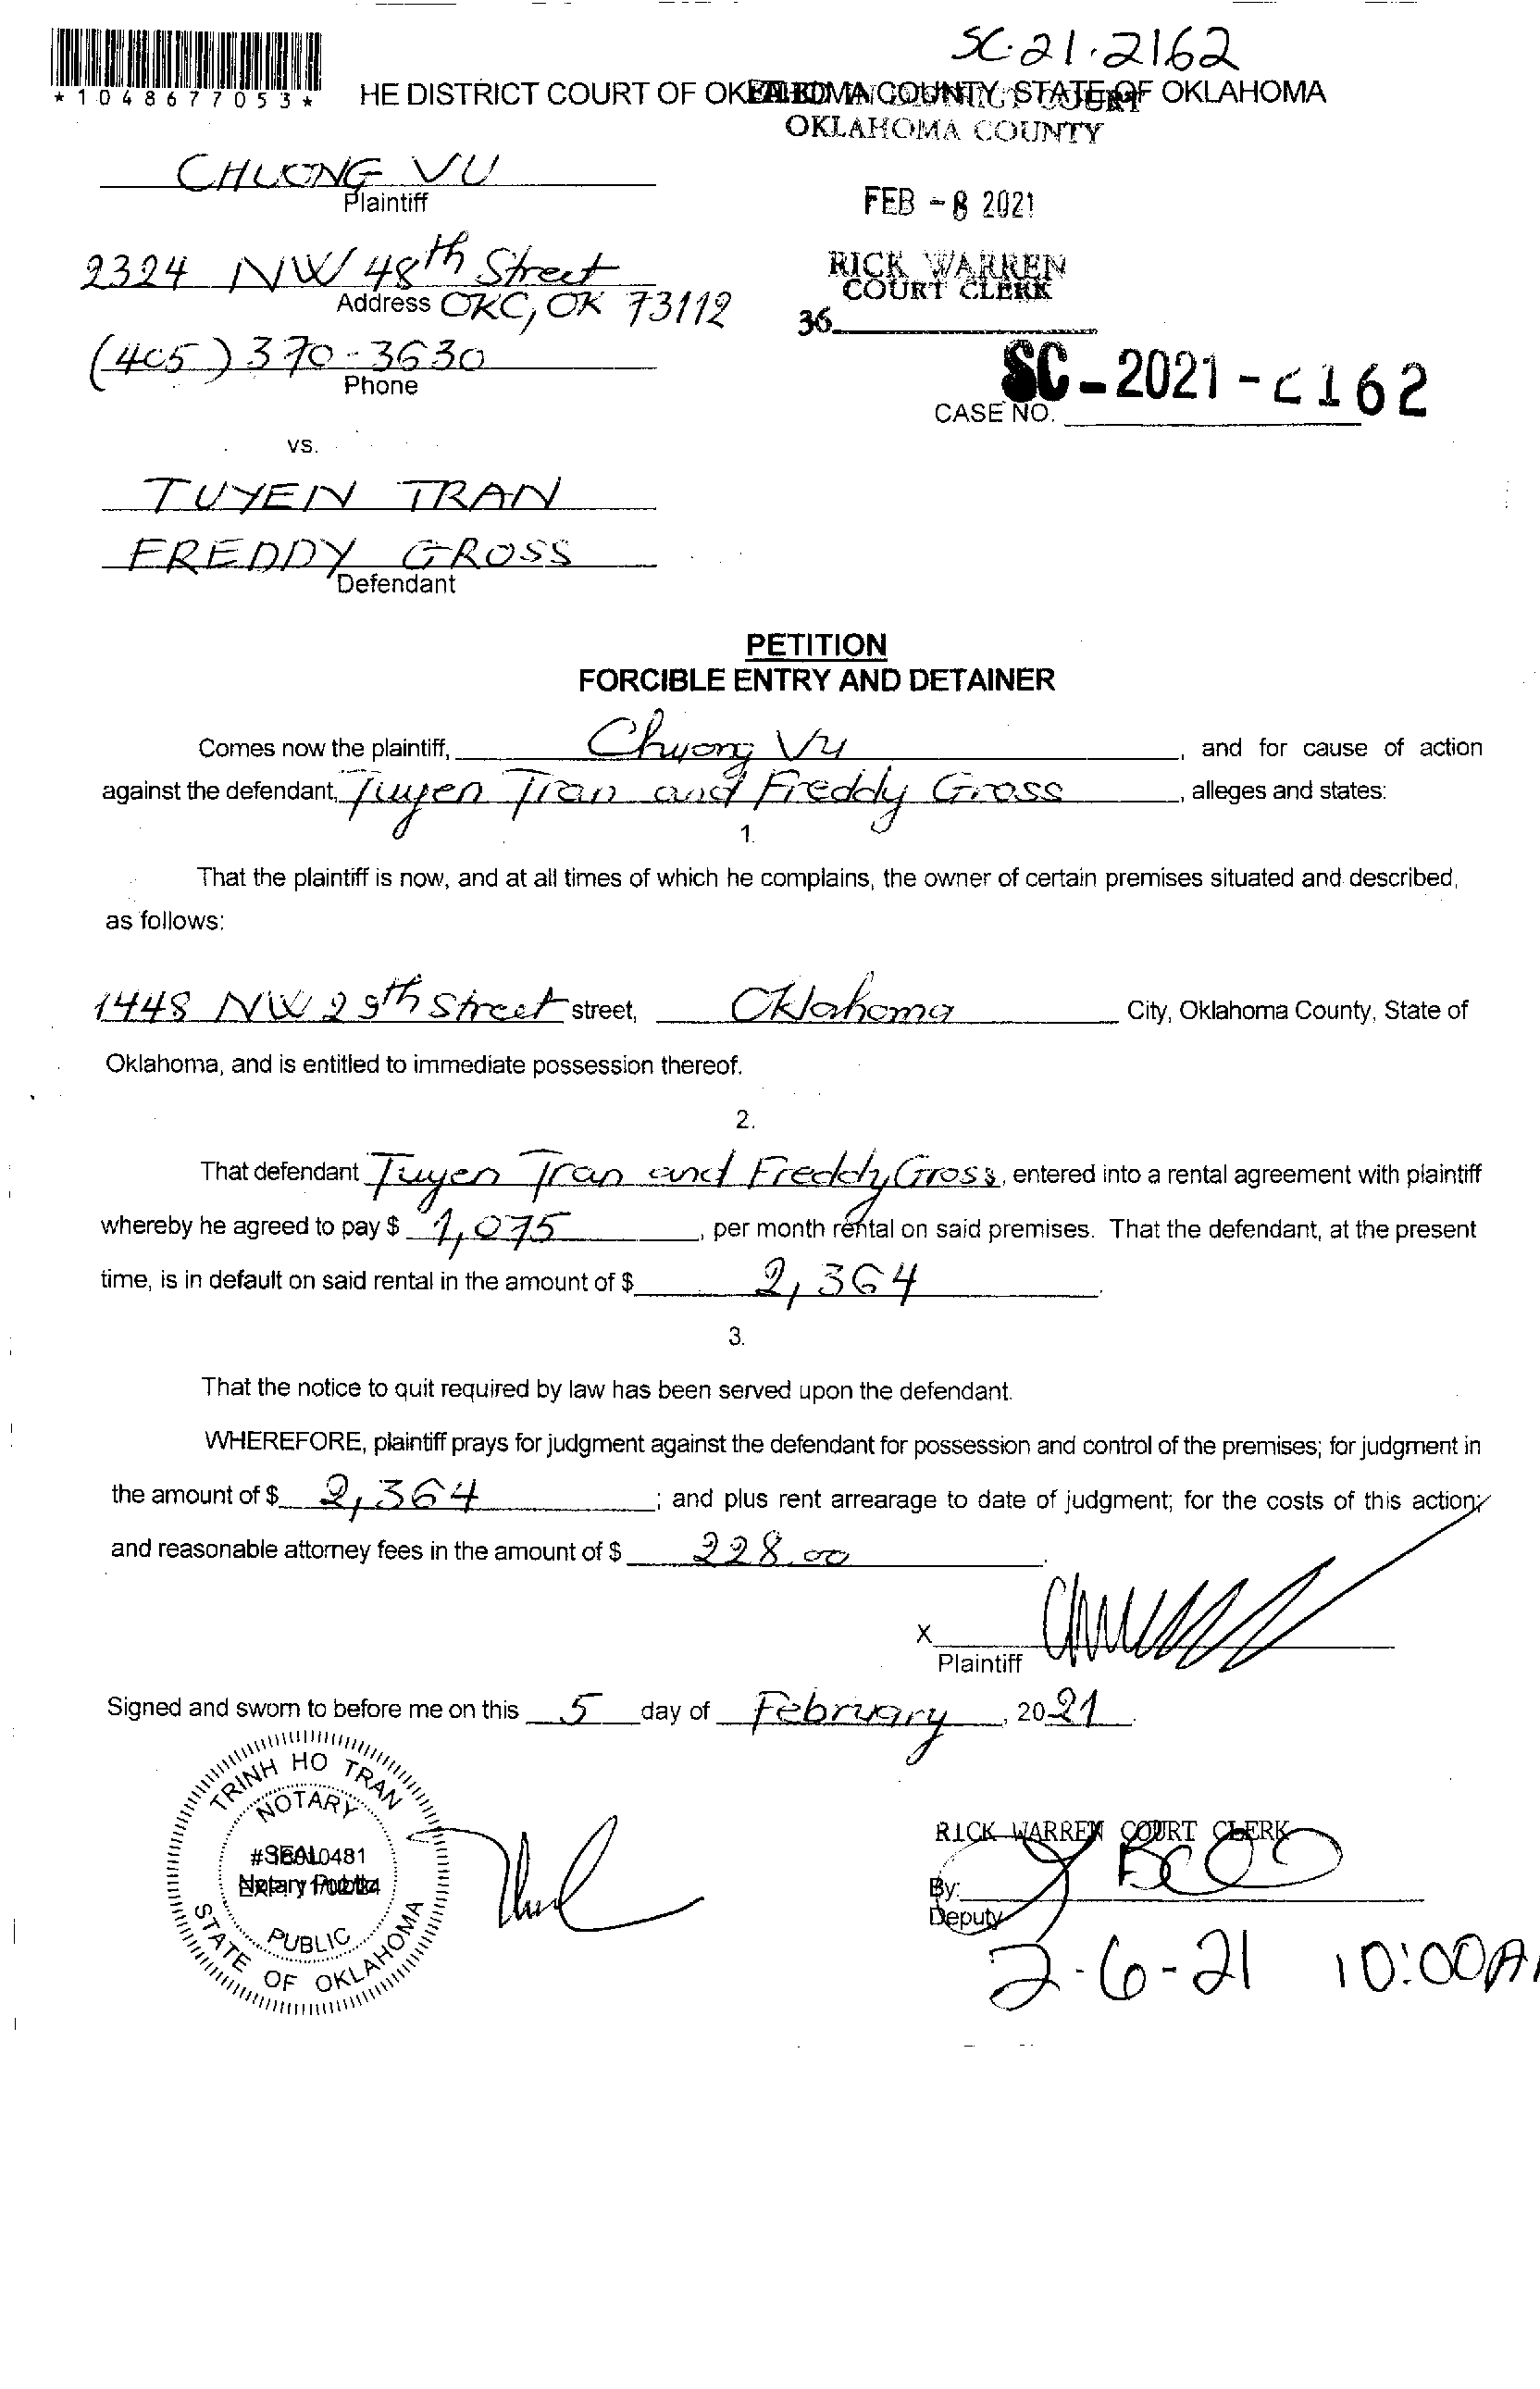 SC-21-2162
*1048677053*
HE DISTRICT COURT OF OKLAHOMA COUNTY, STATE OF OKLAHOMA
OKLAHOMA COUNTY
CHUONG VU
Plaintiff
FEB - 8 2021
2324 NW 48th Street
RICK WARREN
COURT CLERK
Address OKC, OK 73112
36
(405) 370-3630
Phone
SC-2021-2162
CASE NO.
vs.
TUYEN TRAN
FREDDY GROSS
Defendant
PETITION
FORCIBLE ENTRY AND DETAINER
Comes now the plaintiff, Chuong Vu, and for cause of action
against the defendant, Tuyen Tran and Freddy Gross, alleges and states:
1.
That the plaintiff is now, and at all times of which he complains, the owner of certain premises situated and described,
as follows:
1448 NW 29th Street street, Oklahoma City, Oklahoma County, State of
Oklahoma, and is entitled to immediate possession thereof.
2.
That defendant Tuyen Tran and Freddy Gross, entered into a rental agreement with plaintiff
whereby he agreed to pay $ 1,075, per month rental on said premises. That the defendant, at the present
time, is in default on said rental in the amount of $ 2,364.
3.
That the notice to quit required by law has been served upon the defendant.
WHEREFORE, plaintiff prays for judgment against the defendant for possession and control of the premises; for judgment in
the amount of $ 2,364; and plus rent arrearage to date of judgment; for the costs of this action;
and reasonable attorney fees in the amount of $ 228.00.
X
Plaintiff
Signed and sworn to before me on this 5 day of February, 2021.
TRINH HO TRAN
NOTARY
SEAL
Notary Public
PUBLIC
STATE OF OKLAHOMA
RICK WARREN COURT CLERK
By:
Deputy
2-6-21 10:00A